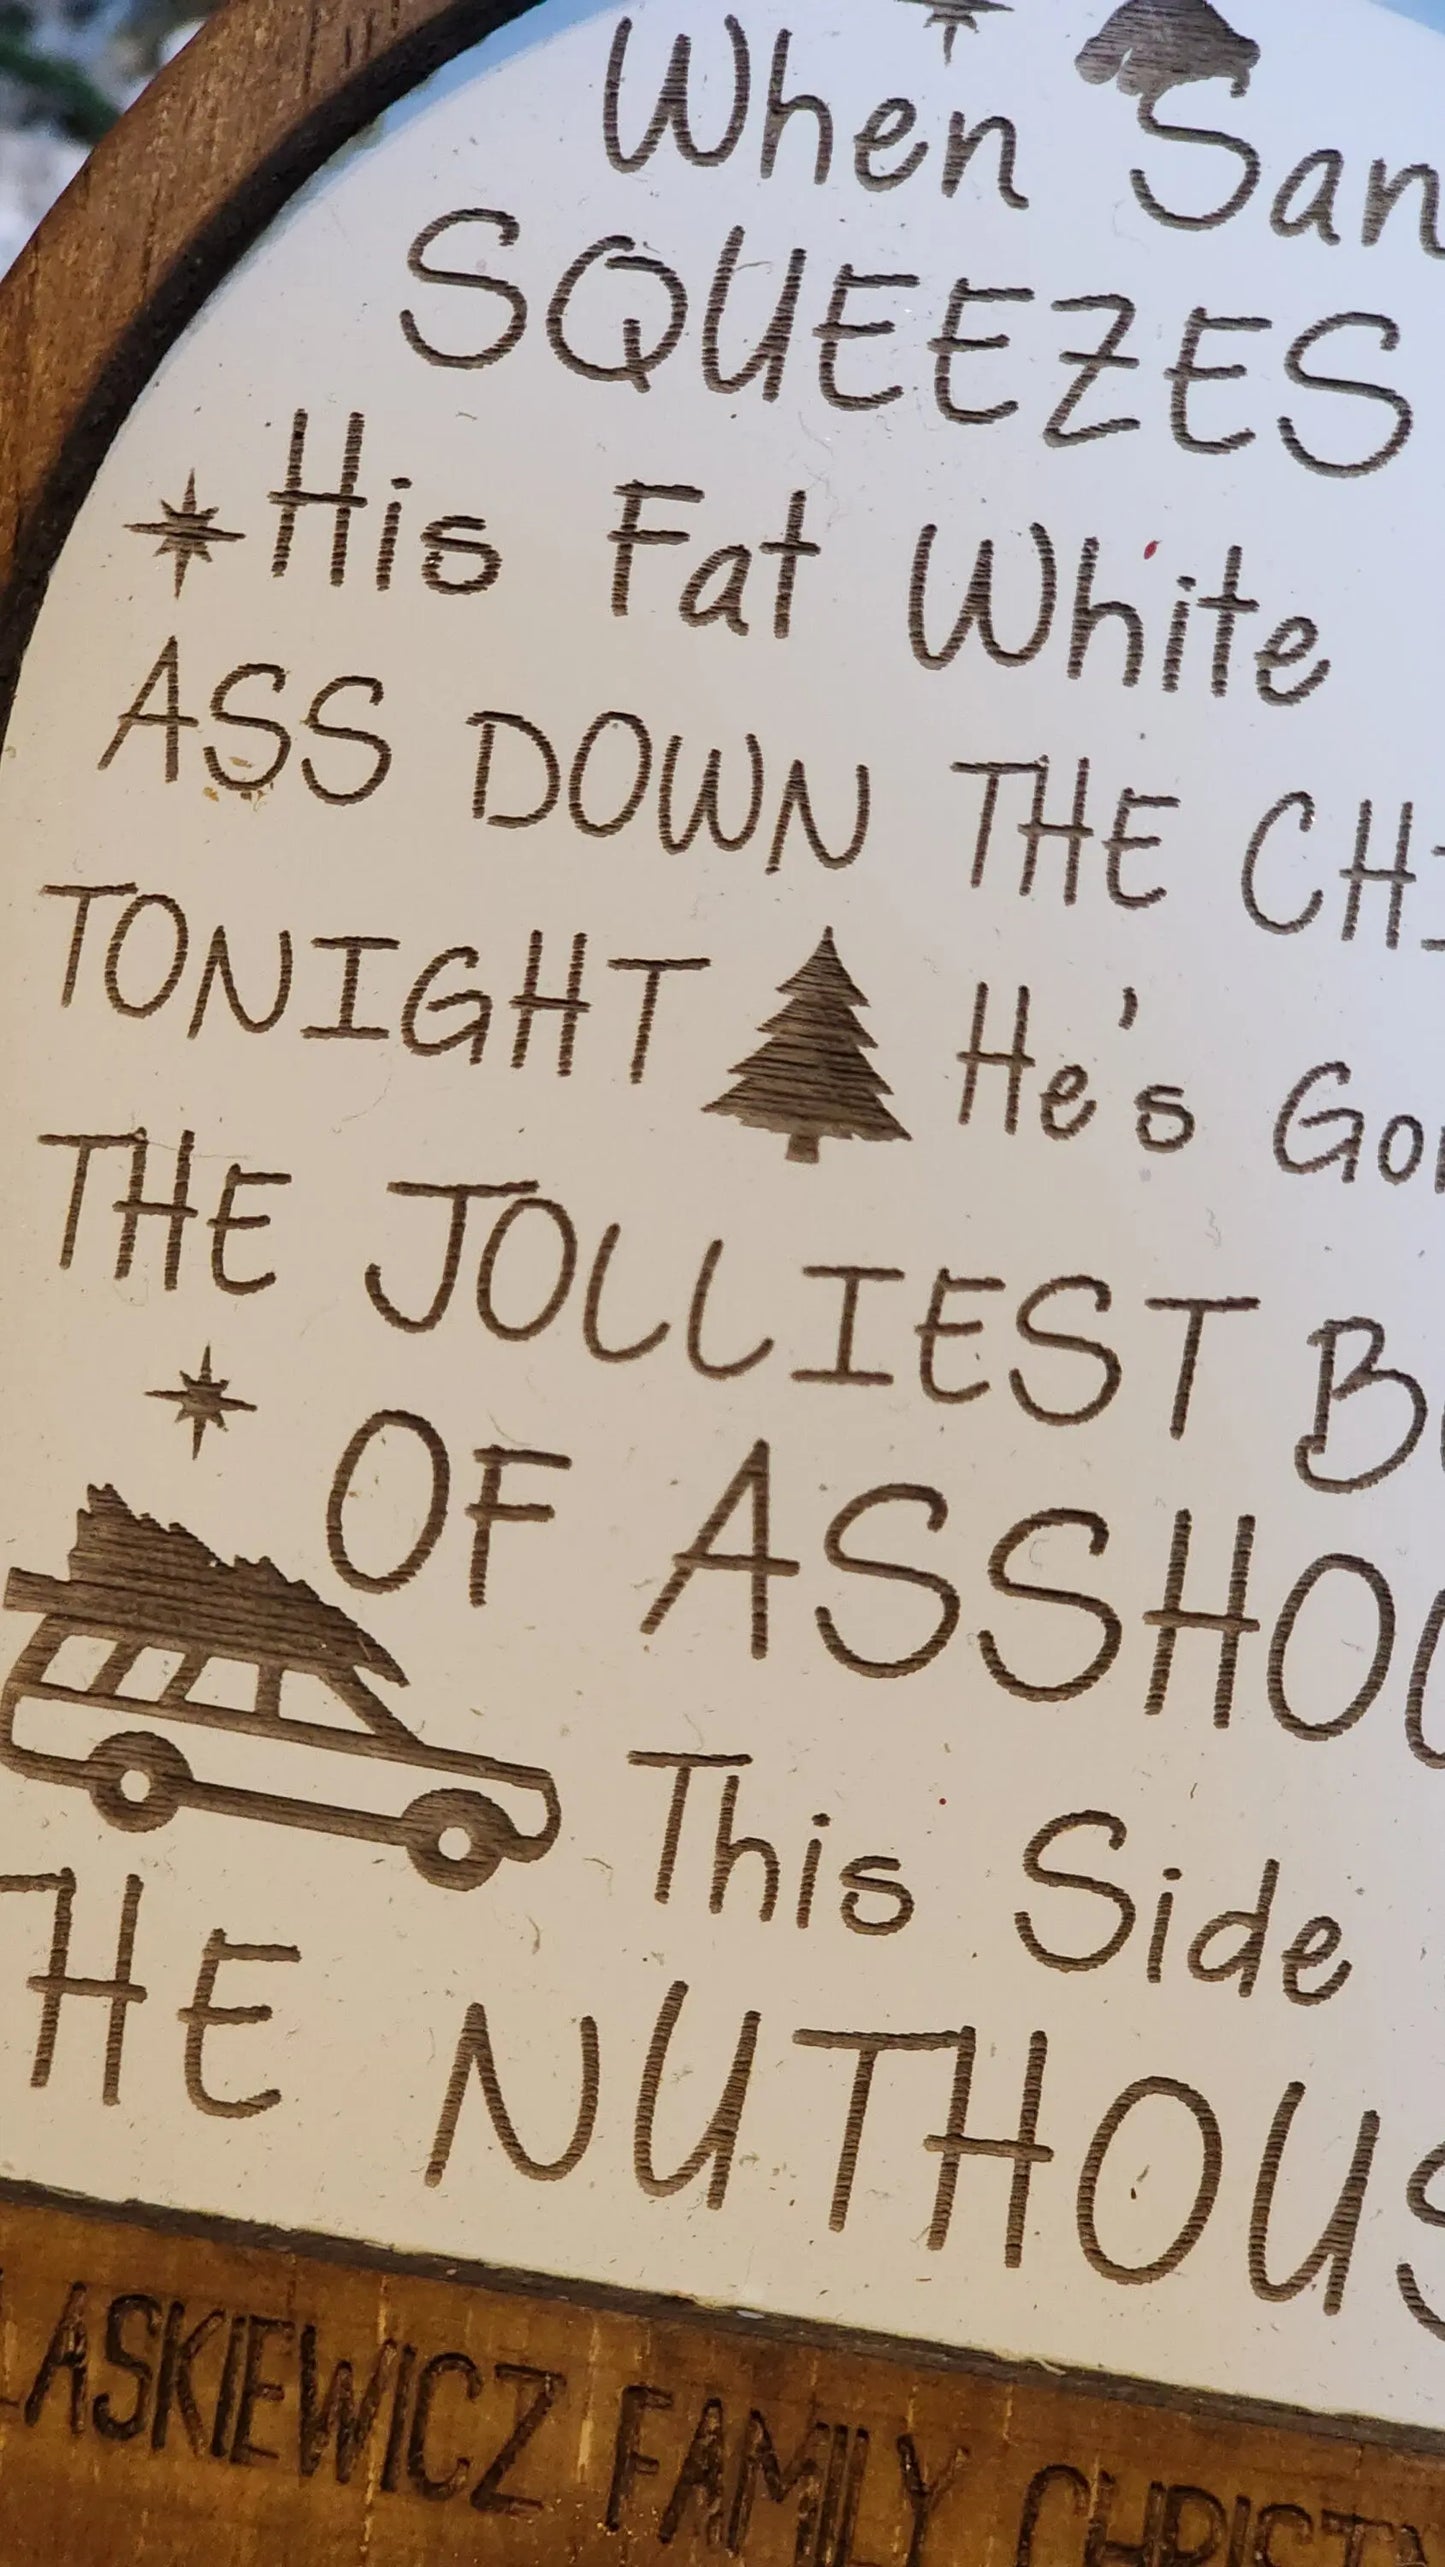 When San
SQUEEZES
His Fat White
ASS DOWN THE CHI
TONIGHT He's Gon
THE JOLLIEST BU
OF ASSHOL
This Side
THE NUTHOUS
LASKIEWICZ FAMILY CHRISTM